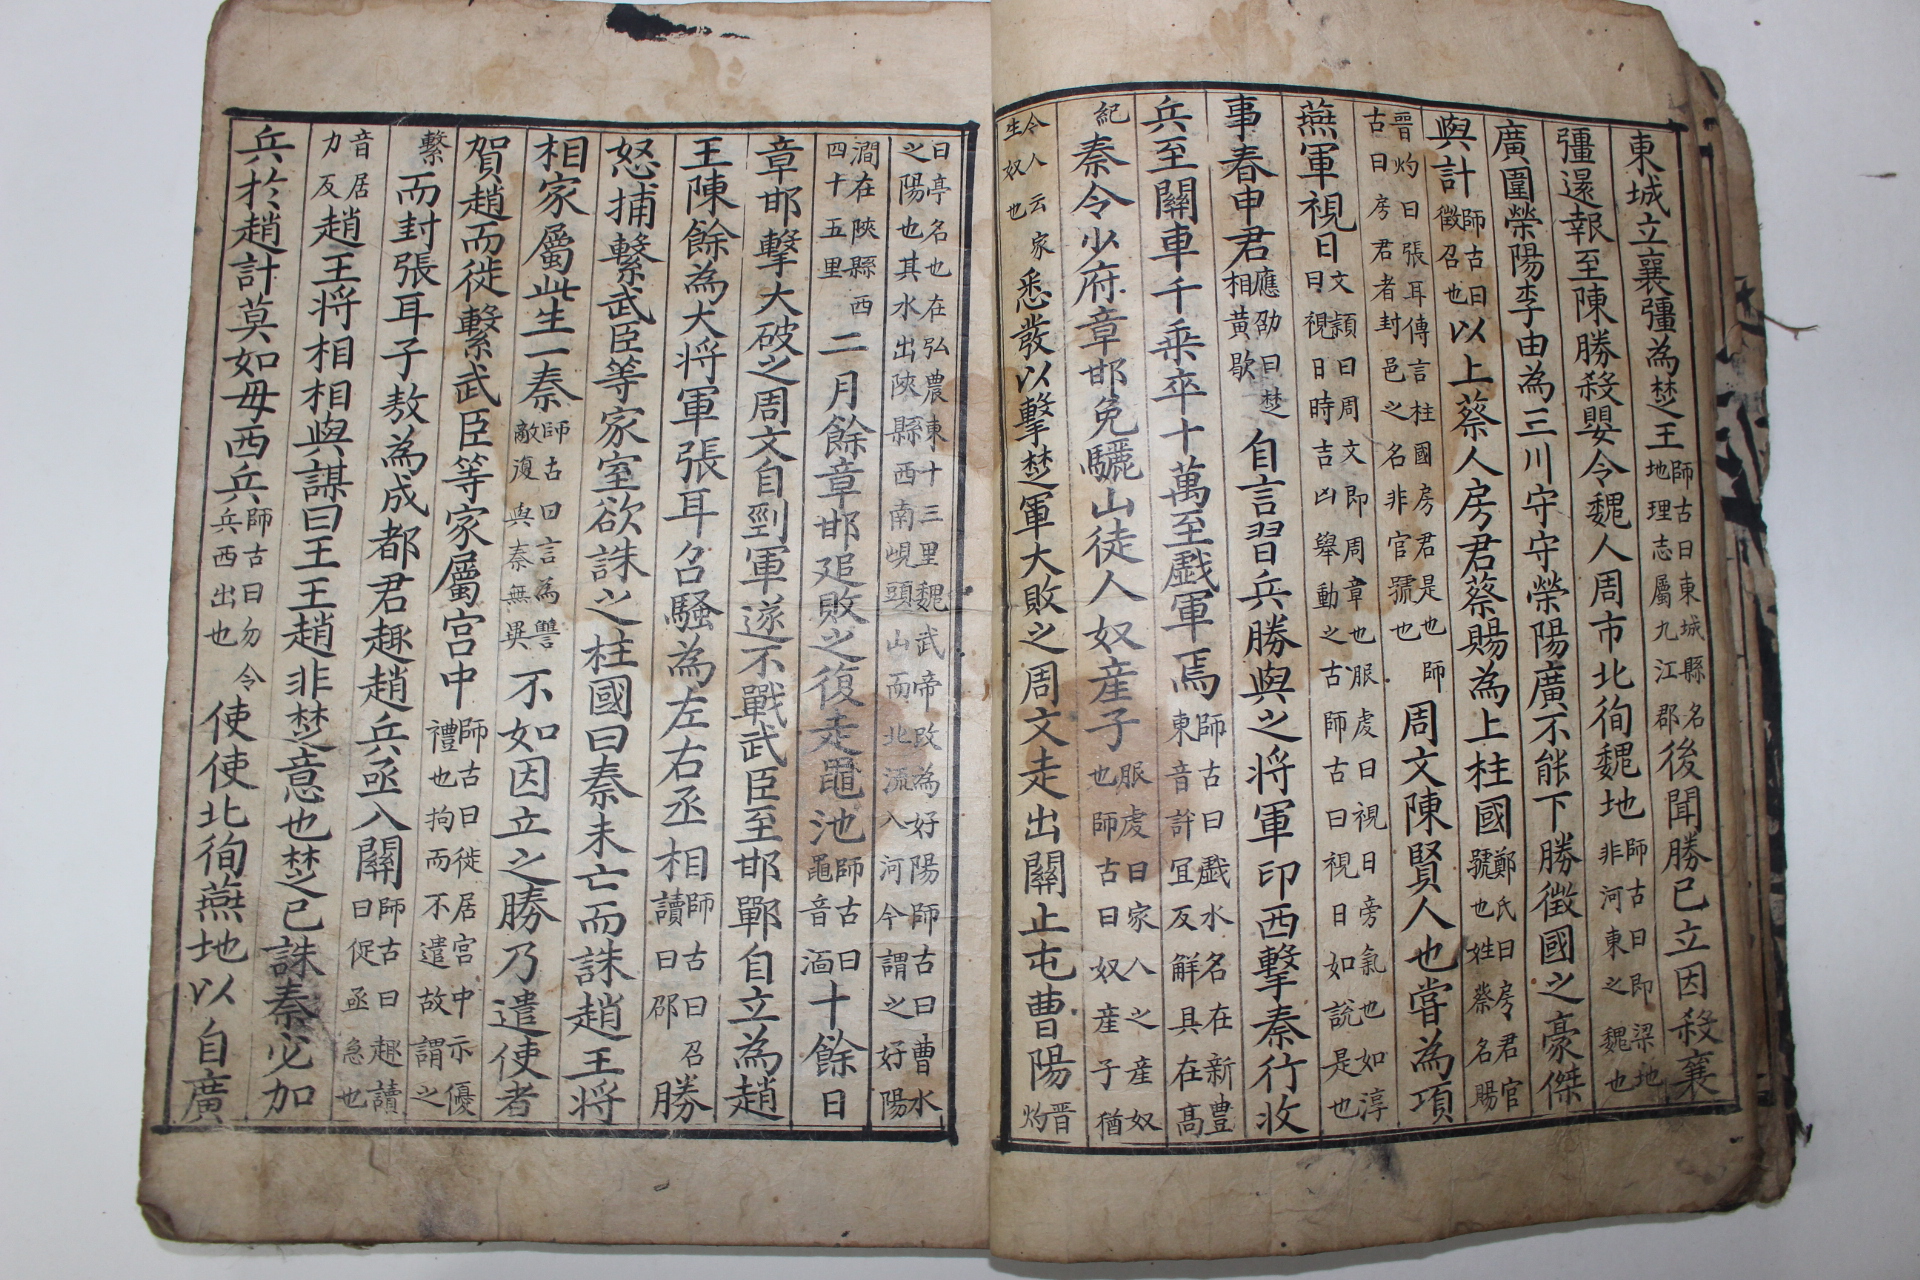 東城立襄彊為楚王師古曰東城縣名地理志屬九江郡後聞勝已立因殺襄
彊還報至陳勝殺嬰令魏人周市北徇魏地師古曰即梁地非河東之魏也
廣圍榮陽李由為三川守守榮陽廣不能下勝徵國之豪傑
與計師古曰徵召也以上蔡人房君蔡賜為上柱國鄭氏曰房君官號也姓蔡名賜
晉灼曰張耳傳言柱國房君是也師古曰房君者封邑之名非官號也周文陳賢人也嘗為項
燕軍視日文頴曰周文即周章也服虔曰視日旁氣也如淳曰視日時吉凶舉動之古師古曰視日如說是也
事春申君應劭曰楚相黃歇自言習兵勝與之將軍印西擊秦行收
兵至關車千乘卒十萬至戲軍焉師古曰戲水名在新豊東音許宜反解具在髙
紀秦令少府章邯免驪山徒人奴産子服虔曰家人之産奴也師古曰奴産子猶
今人云家生奴也悉發以擊楚軍大敗之周文走出關止屯曹陽晋灼
曰亭名也在弘農東十三里魏武帝改為好陽師古曰曹水之陽也其水出陝縣西南峴頭山而北流入河今謂之好陽
澗在陝縣西四十五里二月餘章邯追敗之復走黽池師古曰黽音湎十餘日
章邯擊大破之周文自剄軍遂不戰武臣至邯鄲自立為趙
王陳餘為大將軍張耳召騷為左右丞相師古曰召讀曰邵勝
怒捕繫武臣等家室欲誅之柱國曰秦未亡而誅趙王將
相家屬此生一秦師古曰言為讐敵復與秦無異不如因立之勝乃遣使者
賀趙而徙繫武臣等家屬宮中師古曰徙居宮中示優禮也拘而不遣故謂之
繫而封張耳子敖為成都君趣趙兵亟入關師古曰趣讀曰促亟急也
音居力反趙王將相相與謀曰王王趙非楚意也楚已誅秦必加
兵於趙計莫如毋西兵師古曰勿令兵西出也使使北徇燕地以自廣